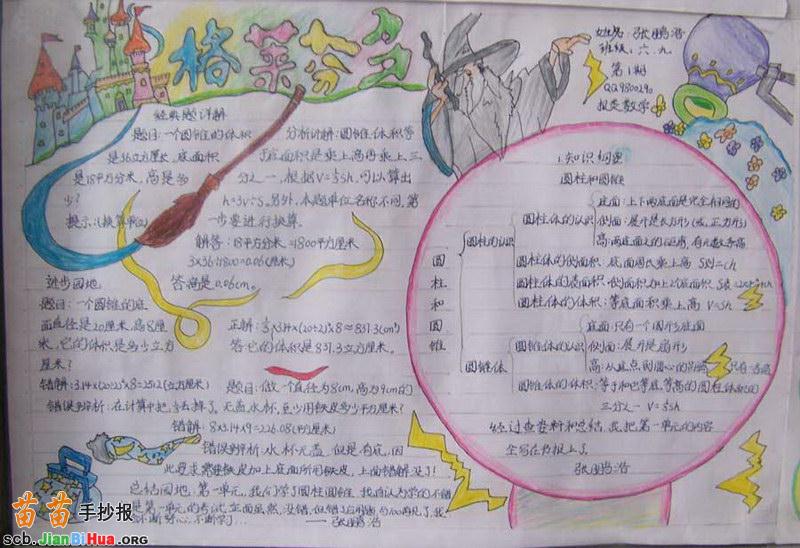 格莱芬多
姓名：张鹏浩
班级：六.九
第1期
QQ980029
报类数学
经典题详解
题目：一个圆锥的体积
是36立方厘米，底面积
是18平方分米，高是多
少？
提示：(换算单位)
分析讲解：圆锥体体积等
于底面积乘上高再乘上三
分之一，根据V=⅓sh，可以算出
h=3v÷s。另外，本题单位名称不同，第
一步要进行换算。
解答：18平方分米=1800平方厘米
3×36÷1800=0.06(厘米)
答：高是0.06cm。
进步园地
题目：一个圆锥的底
面直径是20厘米，高8厘
米，它的体积是多少立方
厘米？
正解：⅓×3.14×(20÷2)²×8≈837.3(cm³)
答：它的体积是837.3立方厘米。
错解：3.14×(20÷2)²×8=2512(立方厘米)
错误评析：在计算中把⅓丢掉了。
题目：做一个直径为8cm，高为9cm的
无盖水杯，至少用铁皮多少平方厘米？
错解：8×3.14×9=226.08(平方厘米)
错误评析：水杯无盖，但是有底，因
此要求需要铁皮加上底面所用铁皮，上面错解没了！
总结园地：第一单元，我们学了圆柱圆锥，我自认为学的不错
张鹏浩
知识构建
圆柱和圆锥
圆柱和圆锥
圆柱的认识
圆柱体的认识
底面：上下两底面是完全相同的
侧面：展开是长方形(或正方形)
高：两底面之间的距离，有无数条高
圆柱体的侧面积：底面周长乘上高 S侧=ch
圆柱体的表面积：侧面积加上2个底面积
圆柱体的体积：等底面积乘上高 V=sh
圆锥体
圆锥体的认识
底面：只有一个圆形底面
侧面：展开是扇形
高：从顶点到圆心的距离 只有一条高
圆锥体的体积：等于和它等底等高的圆柱体积的
三分之一 V=⅓sh
经过查资料和总结，我把第一单元的内容
全写在了报上了
张鹏浩
苗苗手抄报
scb.JianBiHua.org